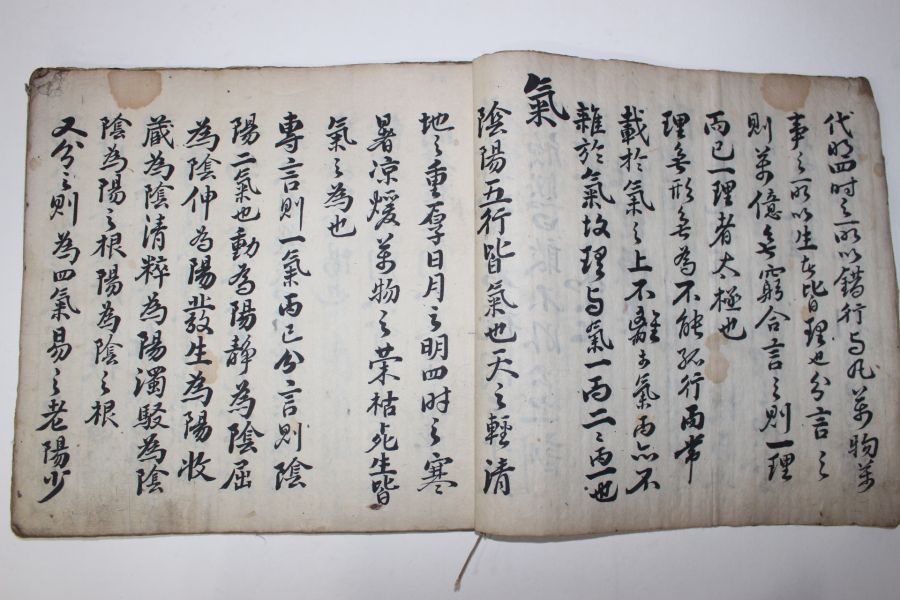 代明四时之所以錯行与凡萬物萬
事之所以生者皆理也分言之
則萬億無窮合言之則一理
而已一理者太極也
理無形無為不能孤行而常
載於氣之上不離於氣而亦不
雜於氣故理与氣一而二二而一也
氣
陰陽五行皆氣也天之輕清
地之重厚日月之明四时之寒
暑凉煖萬物之荣枯死生皆
氣之為也
專言則一氣而已分言則陰
陽二氣也動為陽静為陰屈
為陰伸為陽發生為陽收
藏為陰清粹為陽濁駁為陰
陰為陽之根陽為陰之根
又分之則為四氣易之老陽少